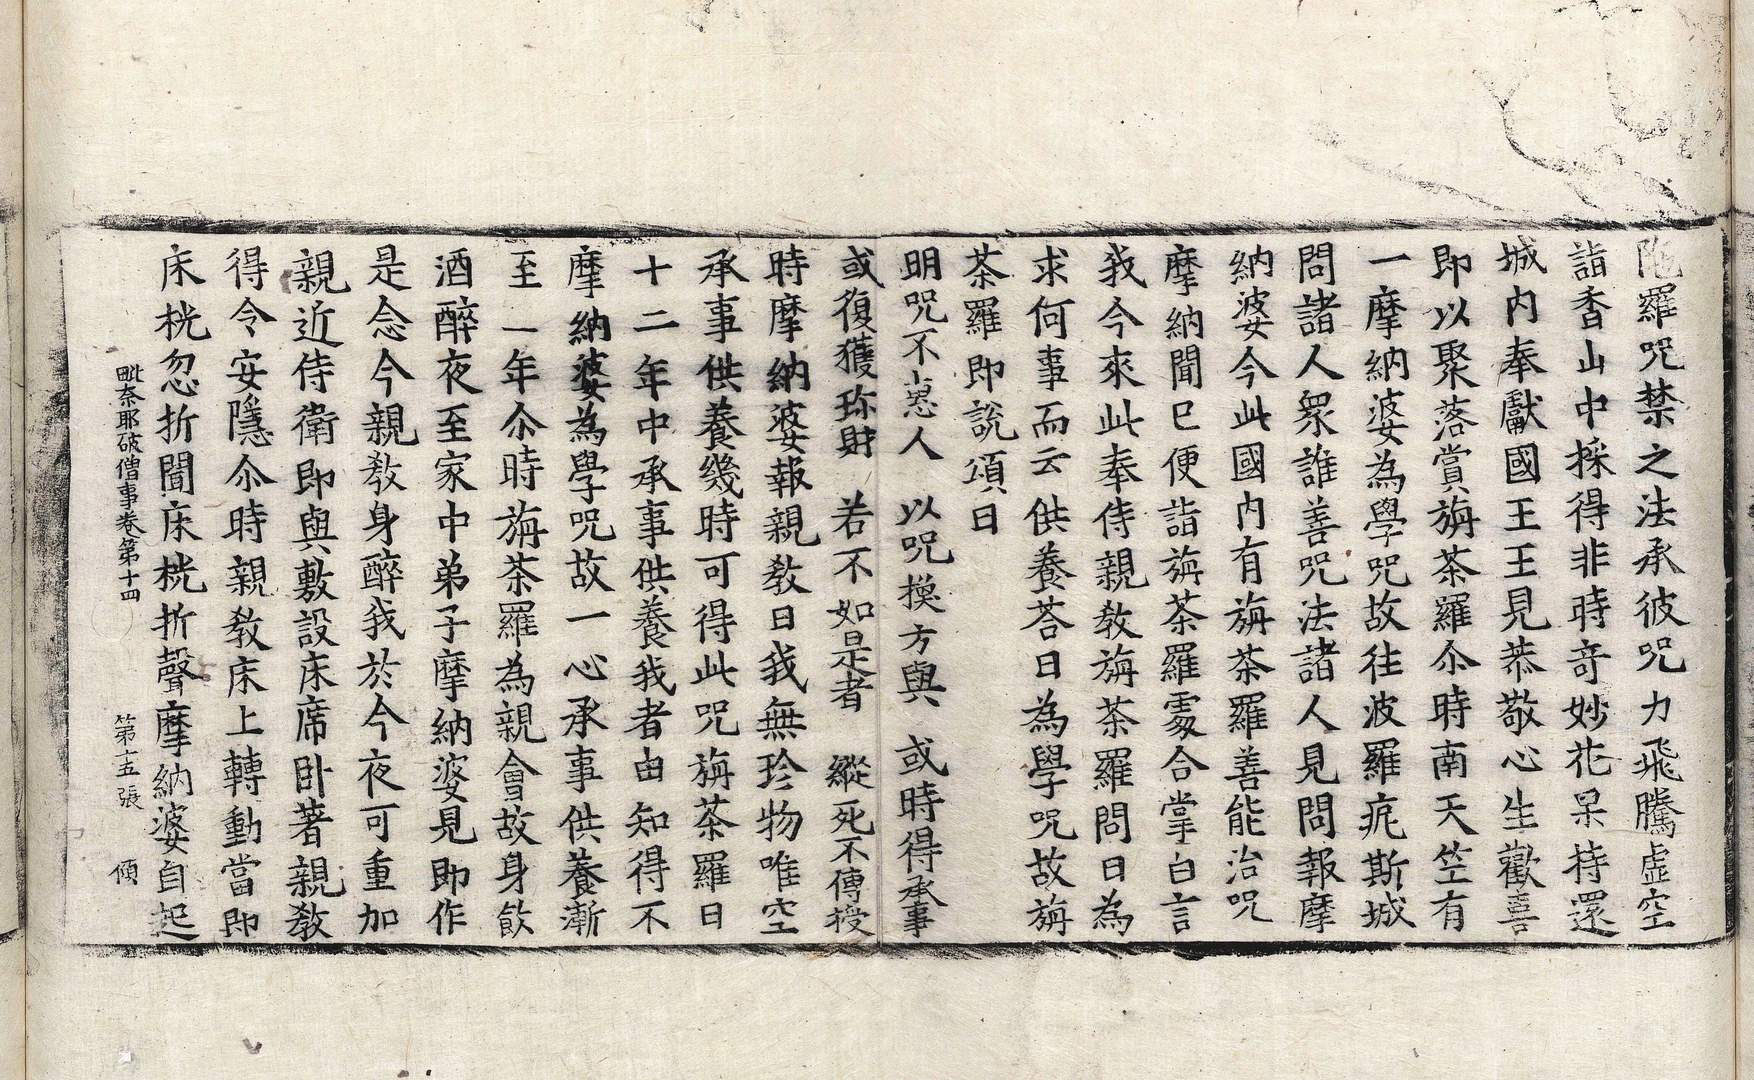 陁羅咒禁之法承彼咒力飛騰虛空
詣香山中採得非時竒妙花果持還
城内奉獻國王王見恭敬心生歡喜
即以聚落賞旃茶羅尒時南天竺有
一摩納婆為學咒故往波羅疪斯城
問諸人衆誰善咒法諸人見問報摩
納婆今此國内有旃茶羅善能治咒
摩納聞已便詣旃茶羅處合掌白言
我今來此奉侍親教旃茶羅問曰為
求何事而云供養荅曰為學咒故旃
茶羅即說頌曰
明咒不惠人　以咒換方與　或時得承事
或復獲珎財　若不如是者　縱死不傳授
時摩納婆報親教曰我無珍物唯空
承事供養幾時可得此咒旃茶羅曰
十二年中承事供養我者由知得不
摩納婆為學咒故一心承事供養漸
至一年尒時旃茶羅為親會故身飲
酒醉夜至家中弟子摩納婆見即作
是念今親教身醉我於今夜可重加
親近侍衛即與敷設床席卧著親教
得令安隱尒時親教床上轉動當即
床桄忽折聞床桄折聲摩納婆自起
毗奈耶破僧事卷第十四　第十五張　傾